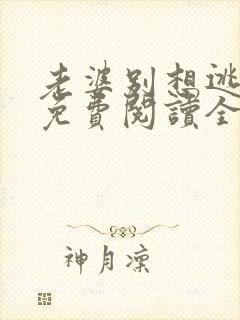 老婆別想逃
免費閱讀全
神月凜